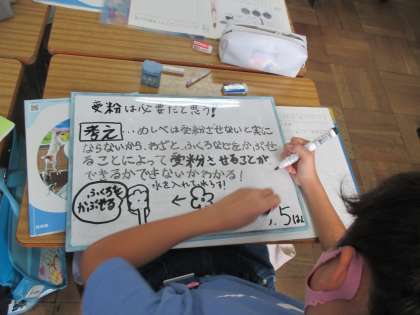 受粉は必要だと思う!
考え…めしべは受粉させないと実に
ならないから、わざと、ふくろなどをかぶせ
ることによって受粉させることが
できるかできないかわかる!
水を入れてわりす!
ふくろを
かぶせる
←
5はん